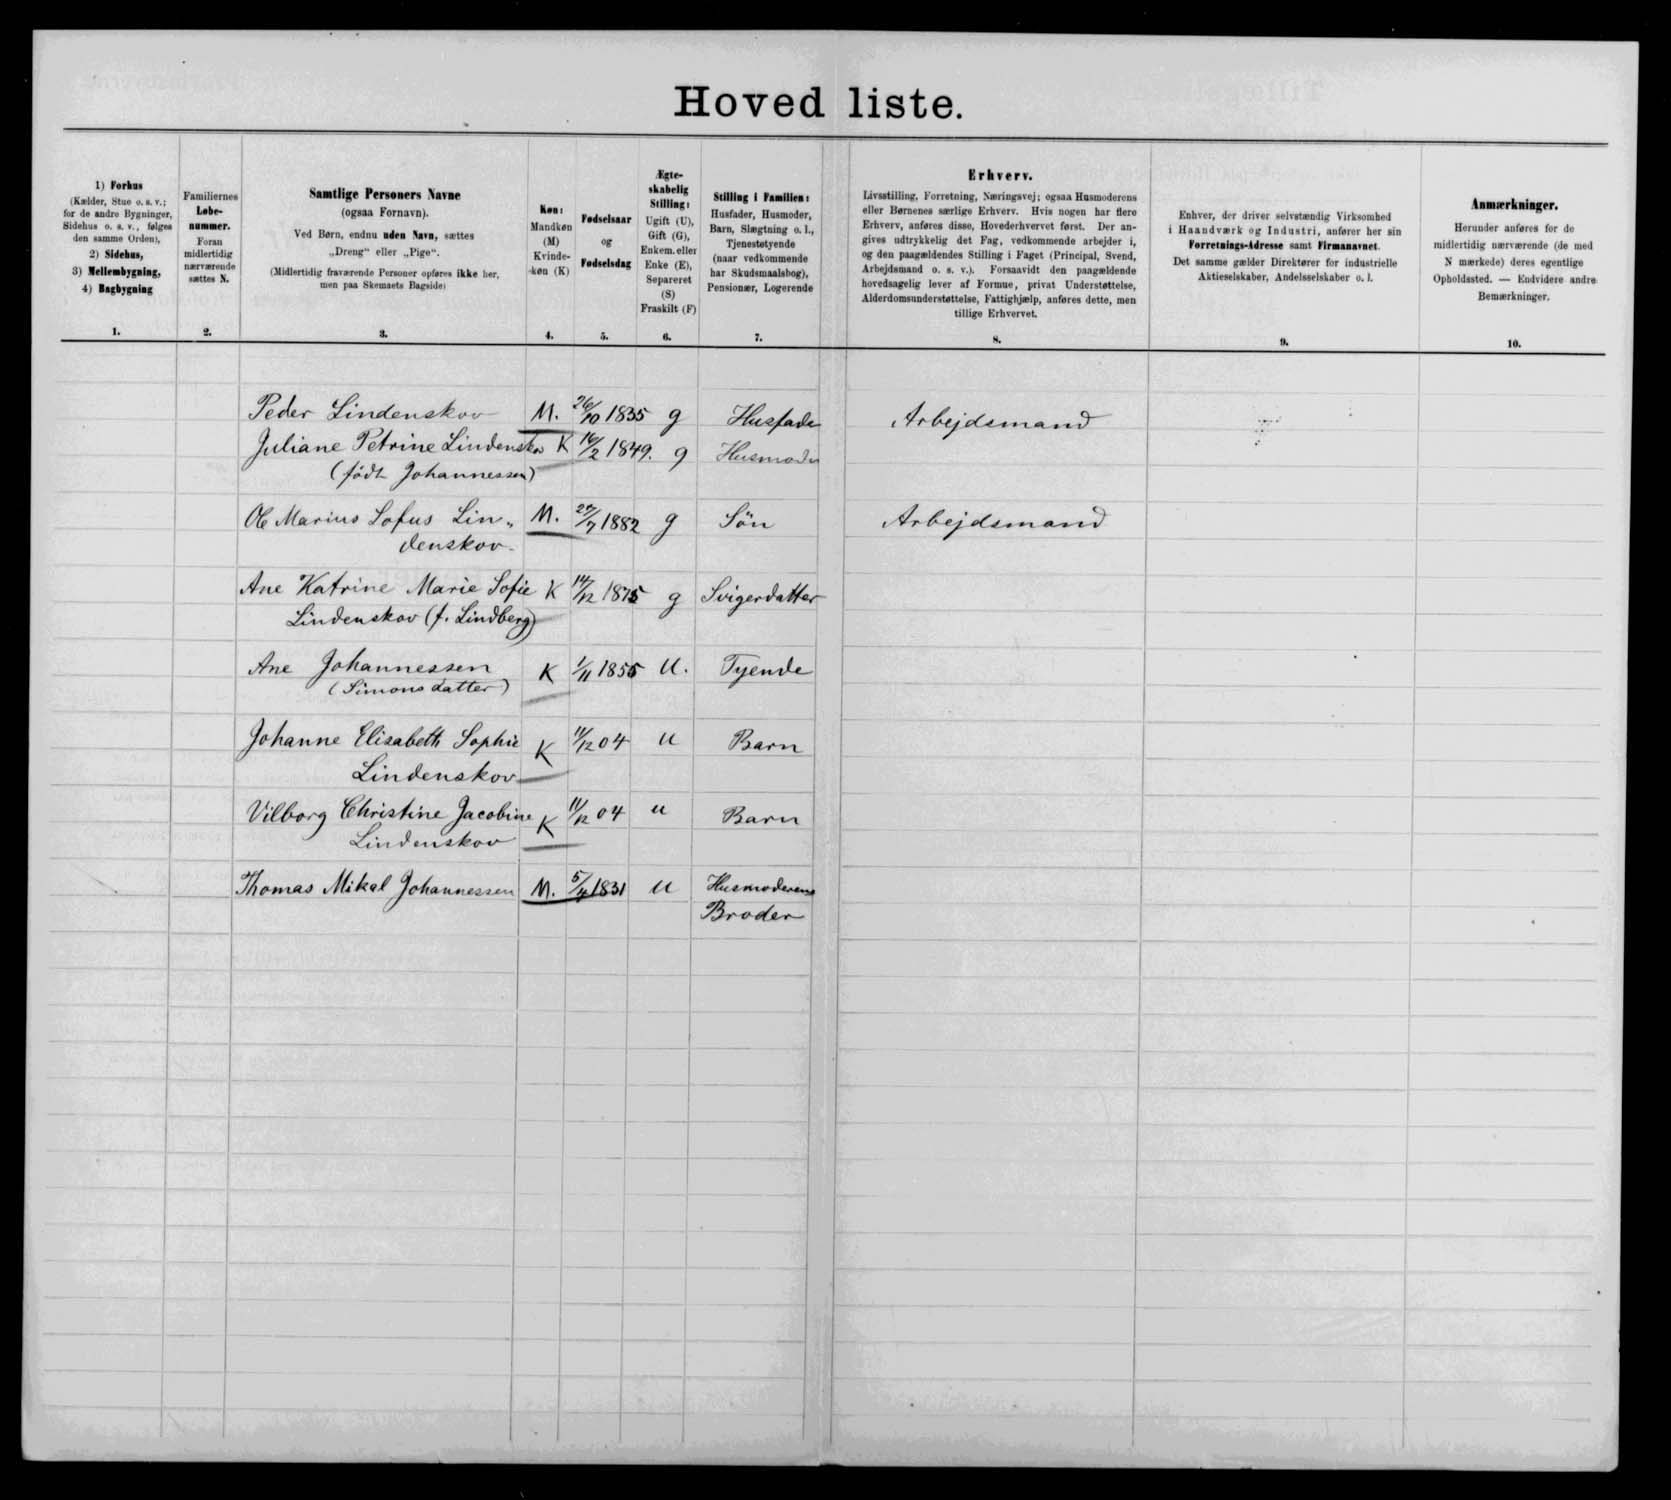 Hoved liste.
1) Forhus
(Kælder, Stue o. s. v.;
for de andre Bygninger,
Sidehus o. s. v., følges
den samme Orden),
2) Sidehus,
3) Mellembygning,
4) Bagbygning
1.
Familiernes
Løbe-
nummer.
Foran
midlertidig
nærværende
sættes N.
2.
Samtlige Personers Navne
(ogsaa Fornavn).
Ved Børn, endnu uden Navn, sættes
„Dreng“ eller „Pige“.
(Midlertidig fraværende Personer opføres ikke her,
men paa Skemaets Bagside)
3.
Køn:
Mandkøn
(M)
Kvinde-
køn (K)
4.
Fødselsaar
og
Fødselsdag
5.
Ægte-
skabelig
Stilling:
Ugift (U),
Gift (G),
Enkem. eller
Enke (E),
Separeret
(S)
Fraskilt (F)
6.
Stilling i Familien:
Husfader, Husmoder,
Barn, Slægtning o. l.,
Tjenestetyende
(naar vedkommende
har Skudsmaalsbog),
Pensionær, Logerende
7.
Erhverv.
Livsstilling, Forretning, Næringsvej; ogsaa Husmoderens
eller Børnenes særlige Erhverv. Hvis nogen har flere
Erhverv, anføres disse, Hovederhvervet først. Der an-
gives udtrykkelig det Fag, vedkommende arbejder i,
og den paagældendes Stilling i Faget (Principal, Svend,
Arbejdsmand o. s. v.). Forsaavidt den paagældende
hovedsagelig lever af Formue, privat Understøttelse,
Alderdomsunderstøttelse, Fattighjælp, anføres dette, men
tillige Erhvervet.
8.
Enhver, der driver selvstændig Virksomhed
i Haandværk og Industri, anfører her sin
Forretnings-Adresse samt Firmanavnet.
Det samme gælder Direktører for industrielle
Aktieselskaber, Andelsselskaber o. l.
9.
Anmærkninger.
Herunder anføres for de
midlertidig nærværende (de med
N mærkede) deres egentlige
Opholdssted. — Endvidere andre
Bemærkninger.
10.
Peder Lindenskov M. 26/10 1835 g Husfader Arbejdsmand
Juliane Petrine Lindenskov K 16/2 1849. g Husmoder
(født Johannessen)
Ole Marius Sofus Lin„ M. 27/7 1882 g Søn Arbejdsmand
denskov.
Ane Katrine Marie Sofie K 14/12 1875 g Svigerdatter
Lindenskov (f. Lindberg)
Ane Johannessen K 1/11 1855 U. Tyende
(Simonsdatter)
Johanne Elisabeth Sophie K 11/12 04 U Barn
Lindenskov
Vilborg Christine Jacobine K 11/12 04 U Barn
Lindenskov
Thomas Mikal Johannessen M. 5/4 1831 U Husmoderens
Broder